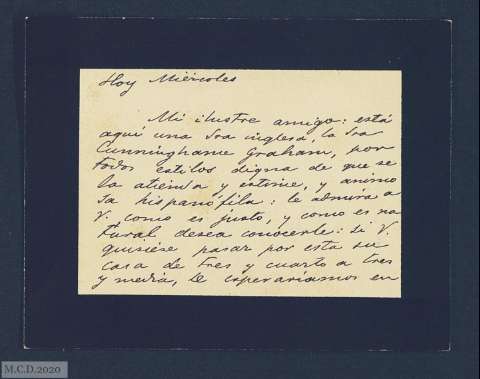 Hoy Miércoles
Mi ilustre amigo: está
aquí una Sra inglesa, la Sra
Cunninghame Graham, por
todos estilos digna de que se
la atienda y estime, y animo
sa hispanófila: le admira a
V. como es justo, y como es na
tural desea conocerle: si V.
quisiese pasar por esta su
casa de tres y cuarto a tres
y media, le esperaríamos en
M.C.D.2020